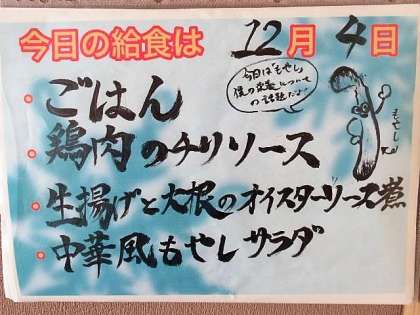 今日の給食は 12月4日
今日は「もやし」
僕の栄養について
の話題だよ
もやし
・ごはん
・鶏肉のチリソース
・生揚げと大根のオイスターソース煮
・中華風もやしサラダ